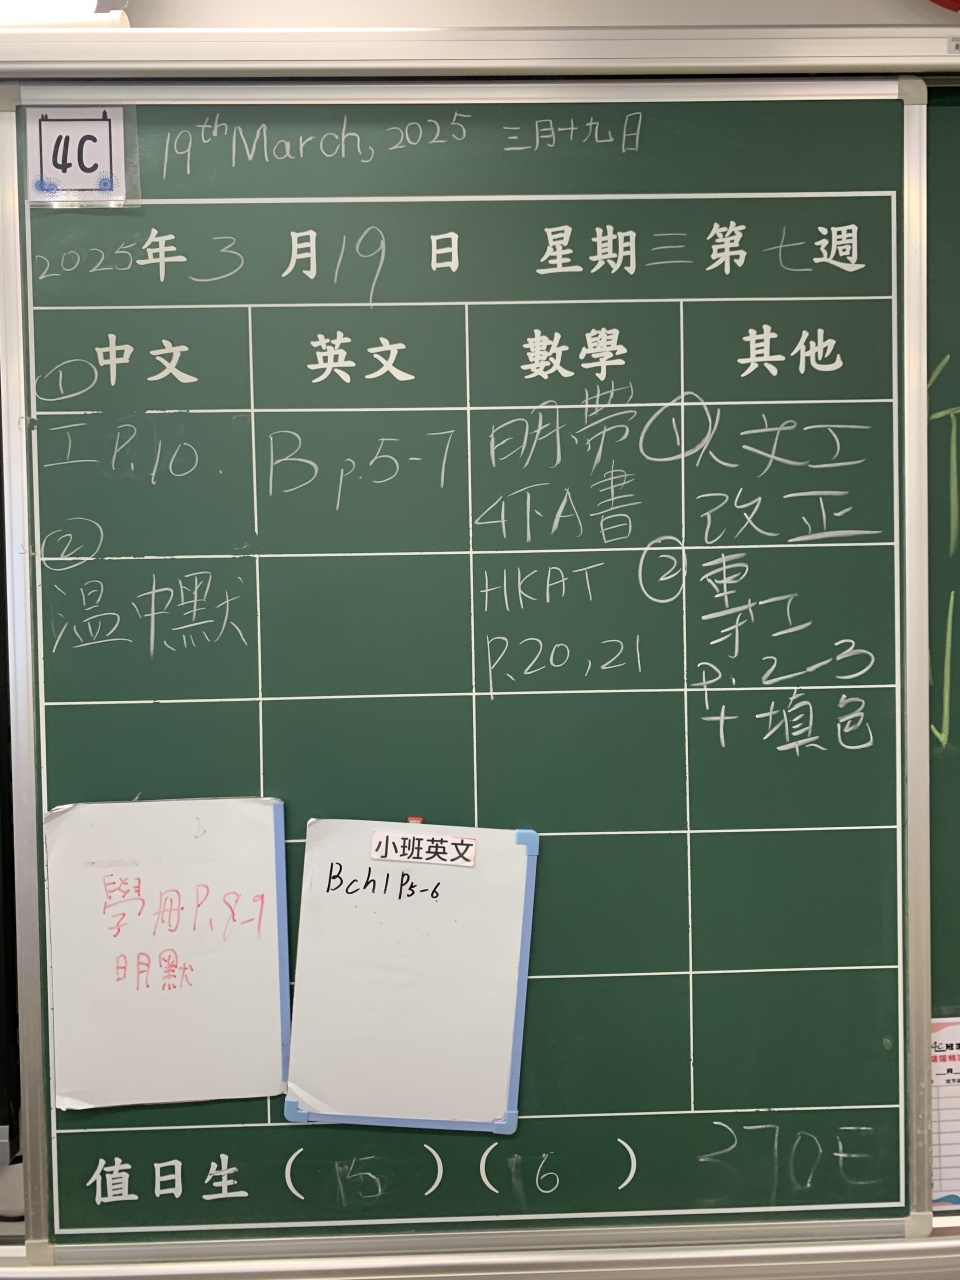 4C
19th March, 2025 三月十九日
2025年3月19日 星期三第七週
中文 英文 數學 其他
① 工 P.10.
② 溫中默
B p.5-7
明帶
4下A書
HKAT
P.20,21
① 人文工
改正
② 專才工
P. 2-3
+ 填色
學冊P.8-9
明默
小班英文
Bch1 P5-6
值日生(15)(16)